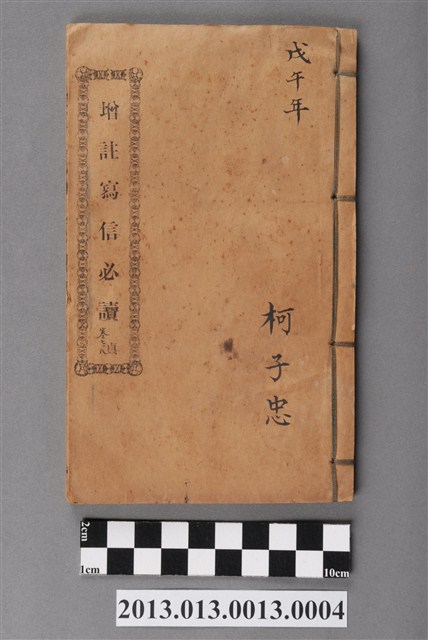 戊午年
柯子忠
增註寫信必讀
2cm
1cm
10cm
2013.013.0013.0004